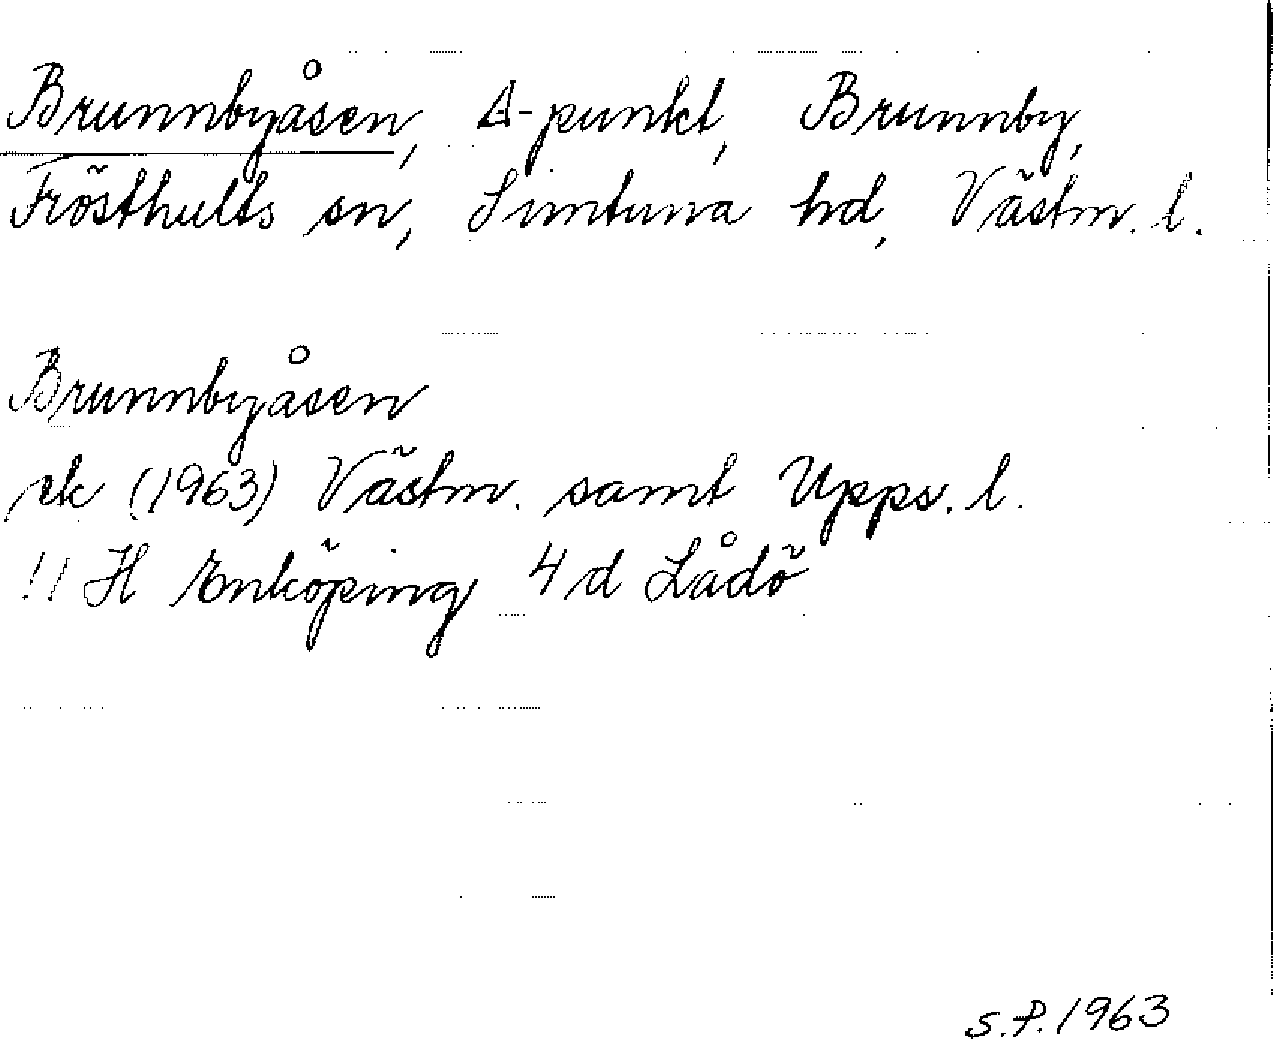 Brunnbyåsen, Δ-punkt, Brunnby,
Frösthults sn, Simtuna hd, Västm. l.
Brunnbyåsen
ek (1963) Västm. samt Upps. l.
!! H Enköping 4 d Lådö
S.P. 1963